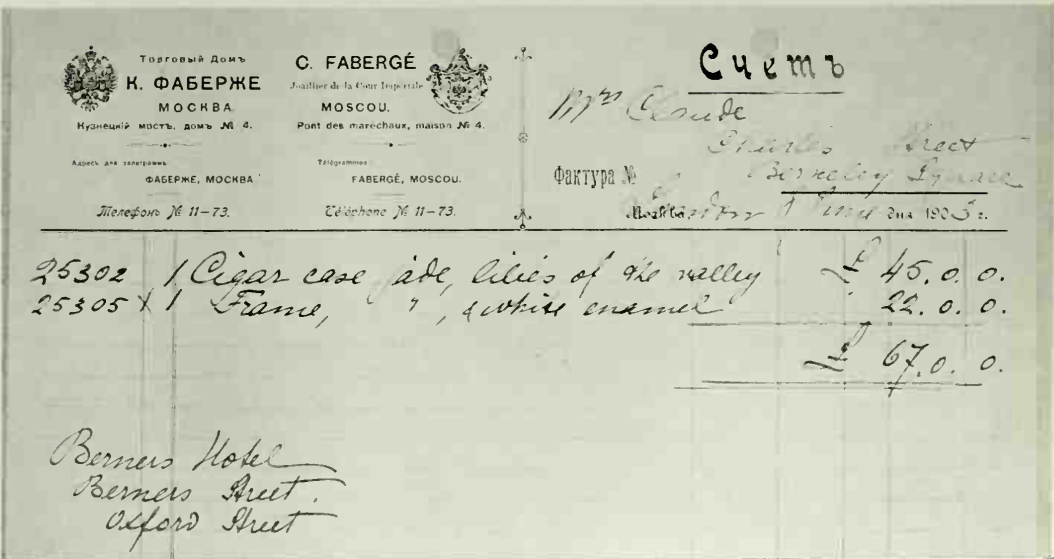 Торговый Домъ
К. ФАБЕРЖЕ
МОСКВА
Кузнецкій мостъ, домъ № 4.
Адресъ для телеграммъ
ФАБЕРЖЕ, МОСКВА
Телефонъ № 11–73.
C. FABERGÉ
Joaillier de la Cour Impériale
MOSCOU.
Pont des maréchaux, maison № 4.
Télégrammes
FABERGÉ, MOSCOU.
Téléphone № 11–73.
Счетъ
Mrs
Charles Street
Фактура № Berkeley Square
Москва London 1 June дня 1903 г.
25302 1 Cigar case jade, lilies of the valley £ 45. 0. 0.
25305 X 1 Frame, " , & white enamel 22. 0. 0.
£ 67. 0. 0.
Berners Hotel
Berners Street.
Oxford Street